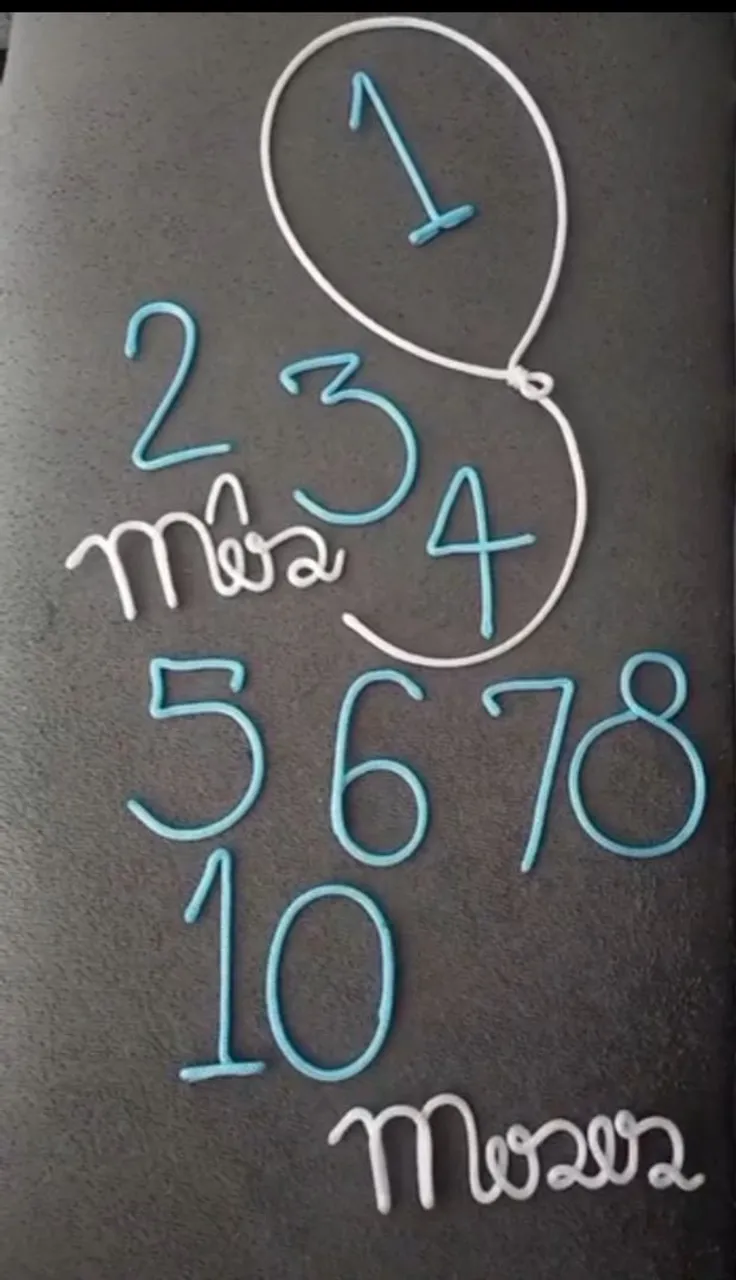 1
2 3
4
Mês
5 6 7 8
10
Meses